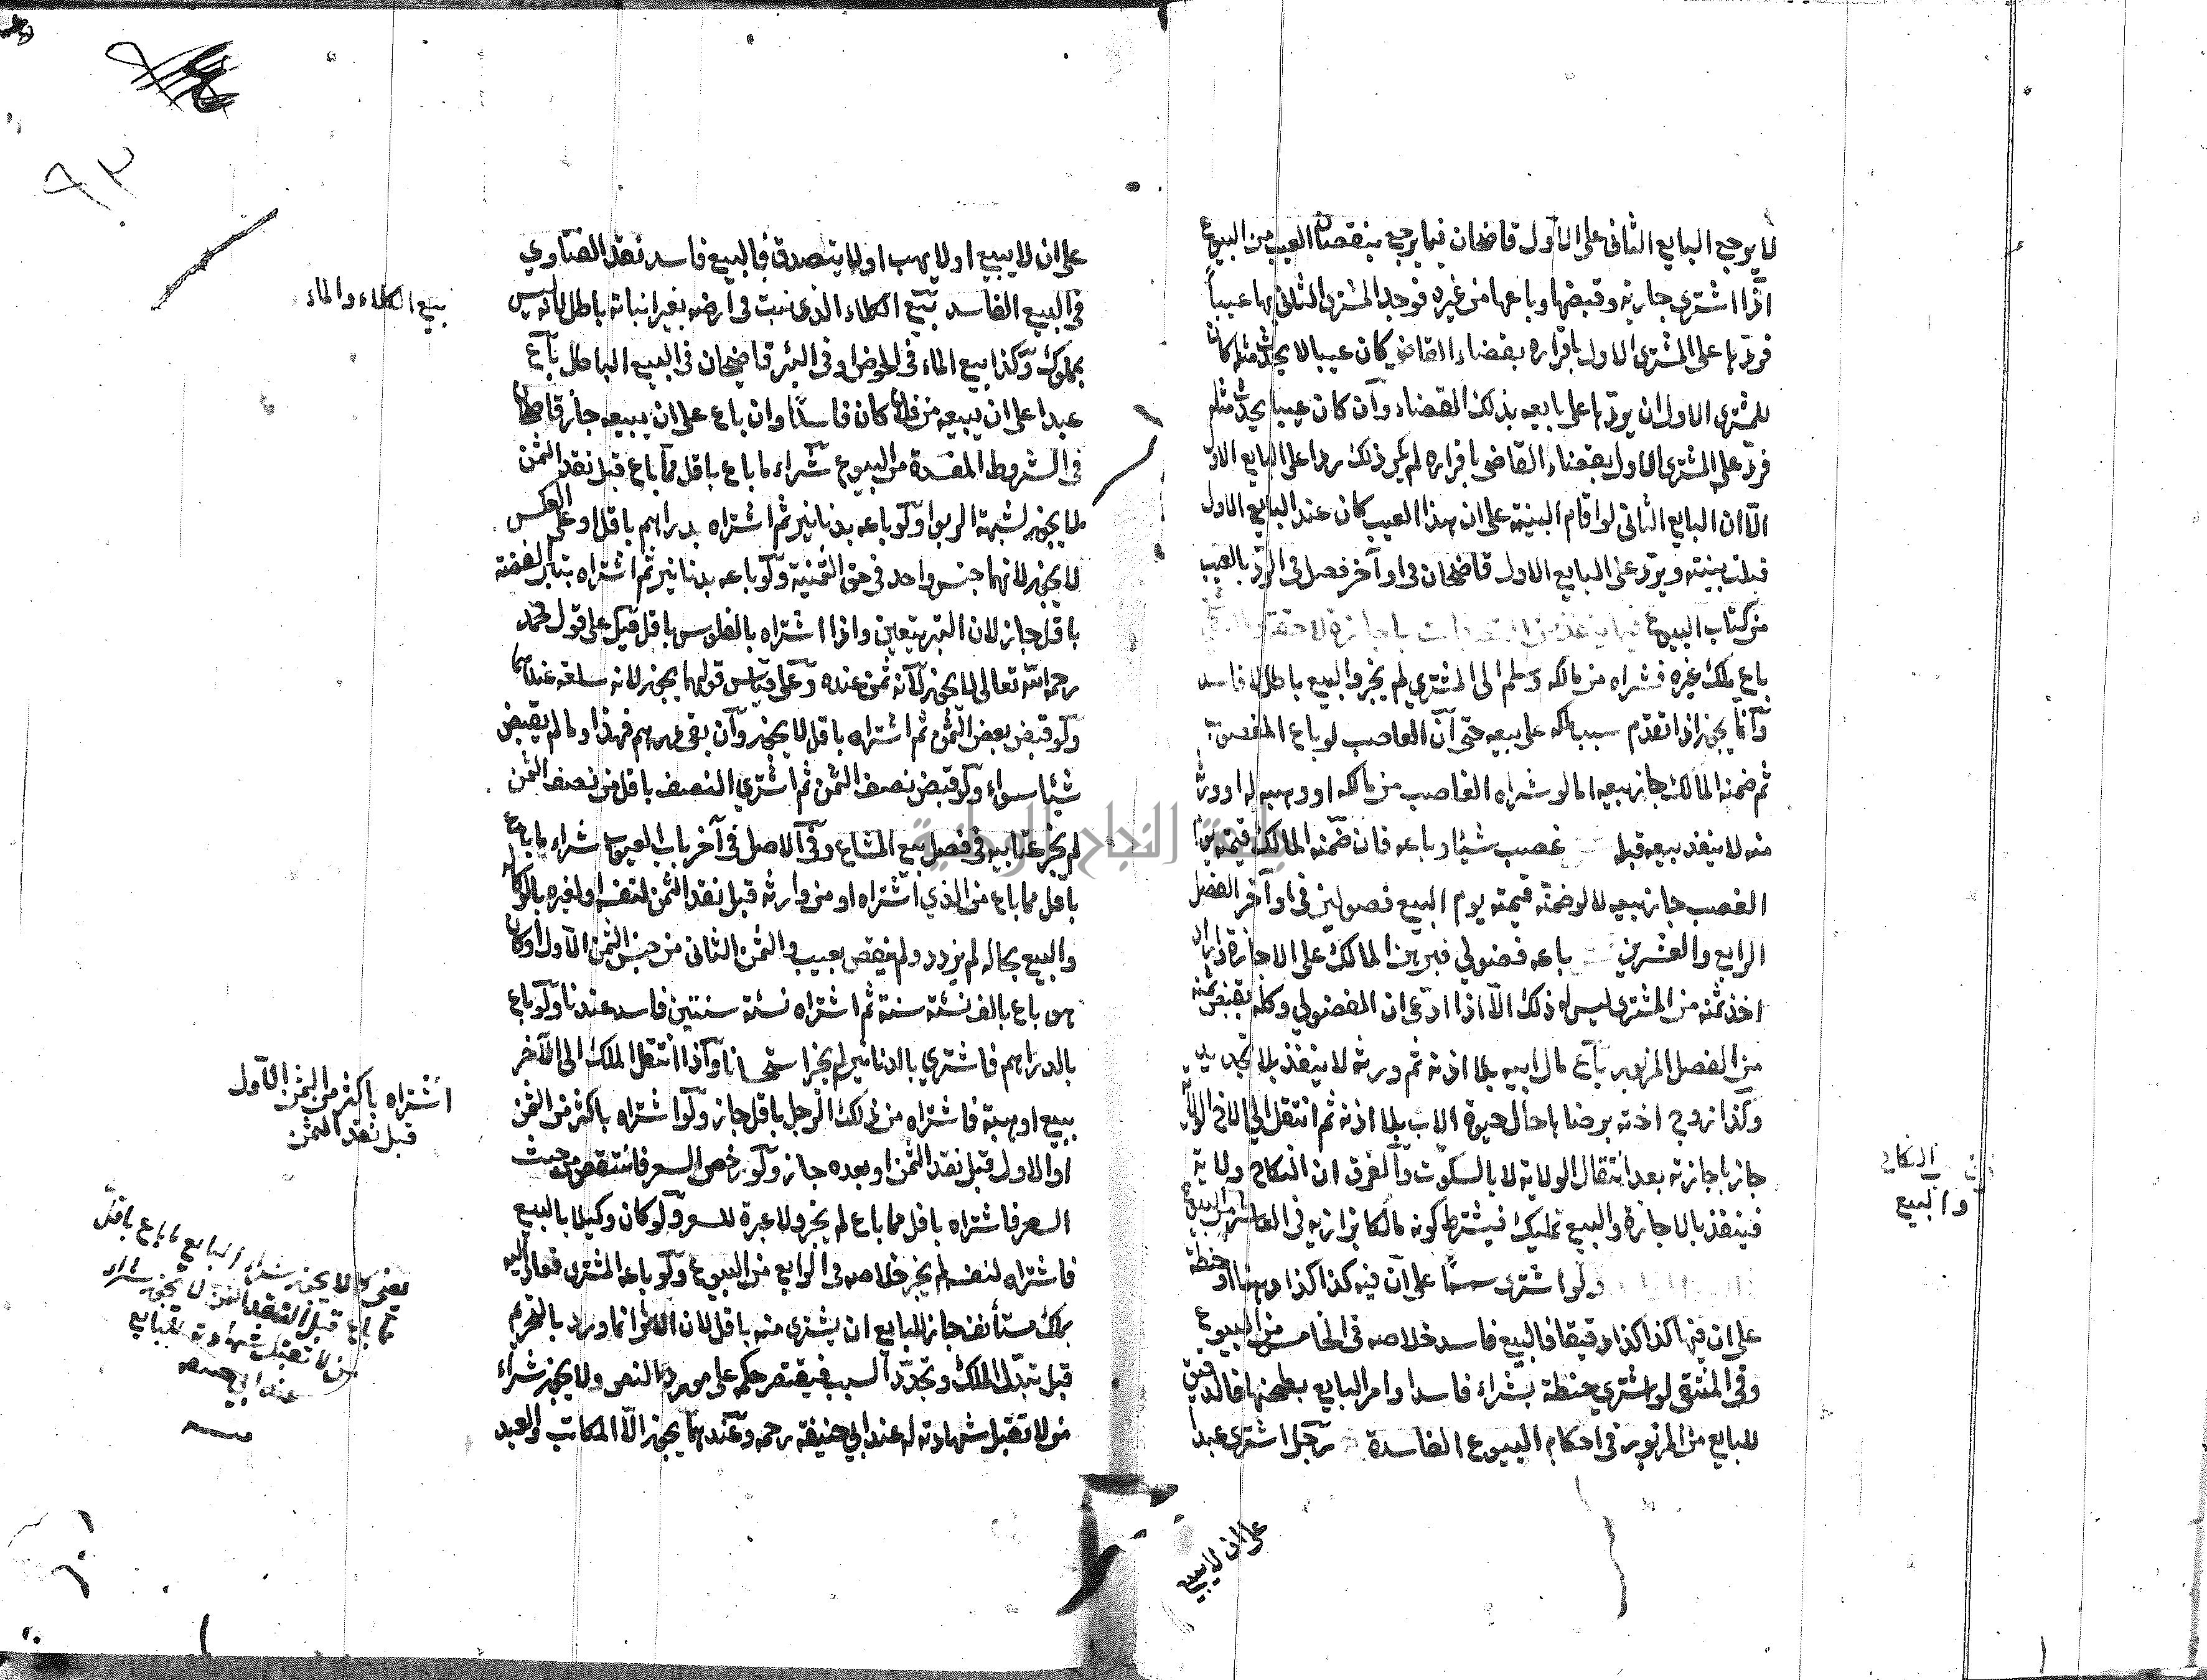 لا يرجع البايع الثانى على الاول قاضخان فيما يرجع بنقصان العيب من البيوع
اذا اشترى جارية وقبضها وباعها من غيره فوجد المشترى الثانى بها عيباً
فردّها على المشترى الاول باقراره بقضاء القاضى كان عيبا لا يحدث مثله كان
للمشترى الاول ان يردّها على بايعه بذلك القضاء وان كان عيبا يحدث مثله
فردّ على المشترى الاول بقضاء القاضى باقراره لم يكن ذلك ردا على البايع الاول
الّا ان البايع الثانى لو اقام البينة على ان هذا العيب كان عند البايع الاول
قبلت بينته ويردّ على البايع الاول قاضخان فى اوآخر فصل فى الردّ بالعيب
من كتاب البيوع
باع ملك غيره فشراه من مالكه وسلم الى المشترى لم يجز والبيع باطل لا فاسد
وانّما يجوز اذا تقدّم سبب ملكه على بيعه حتى انّ الغاصب لو باع المغصوب
ثم ضمنه المالك جاز بيعه امالو شراه الغاصب من مالكه او وهبه له او ورث
منه لا ينفذ بيعه قبله غصب شيئا وباعه فان ضمّنه المالك قيمته يوم
الغصب جاز بيعه لا لو ضمّنه قيمته يوم البيع فصولين فى اوآخر الفصل
الرابع والعشرين باعه فضولي فبرهن المالك على الاجازة واراد
اخذ ثمنه من المشترى ليس له ذلك الّا اذا ادّعى ان الفضولي وكله بقبض ثمنه
من الفصل المزبور باع مال ابيه بلا اذنه ثم ورثه لا ينفذ بلا تجديد
وكذا زوج اخته برضاها حال حيوة الاب بلا اذنه ثم انتقل الى الاخ الولاية
جاز باجازته بعد انتقال الولاية لا بالسكوت والفرق ان النكاح ولاية
فينفذ بالاجازة والبيع تمليك فيشترط كونه مالكا بزازيه فى العاشر من البيوع
ولو اشترى سمسما على انّ فيه كذا كذا دهنا او حنطة
على ان فيها كذا كذا دقيقا فالبيع فاسد خلاصه فى الخامس من البيوع
وفى المنتقى لو اشتري حنطة بشراء فاسد وامر البايع بطحنها فالدقيق
للبايع من المزبور فى احكام البيوع الفاسدة رجل اشترى عبدا
على ان لا يبيع
النكاح
والبيع
على ان لا يبيع او لا يهب او لا يتصدق فالبيع فاسد نقد الفتاوي
فى البيع الفاسد بيع الكلاء الذى نبت فى ارضه بغير انباته باطل لانه ليس
بمملوك وكذا بيع الماء فى الحوض او فى البئر قاضخان فى البيع الباطل باع
عبدا على ان يبيعه من فلان كان فاسدًا وان باع على ان يبيعه جاز قاضخان
فى الشروط المفسدة من البيوع شراء ما باع باقل مما باع قبل نقد الثمن
لا يجوز لشبهة الربوا ولو باعه بدنانير ثم اشتراه بدراهم باقل او على العكس
لا يجوز لانهما جنس واحد فى حق الثمنية ولو باعه بدنانير ثم اشتراه بتبر الفضة
باقل جاز لان التبر يتعين واذا اشتراه بالفلوس باقل قيل على قول محمد
رحمه الله تعالى لا يجوز لانه ثمن عنده وعلى قياس قولهما يجوز لانه سلعة عندهما
ولو قبض بعض الثمن ثم اشتراه باقل لا يجوز وان بقى درهم فهذا وما لم يقبض
شيئا سواء ولو قبض نصف الثمن ثم اشتري النصف باقل من نصف الثمن
لم يجز عتابيه فى فصل بيع المشاع وفى الاصل فى آخر باب العيوب شراء ما باع
باقل مما باع من الذي اشتراه او من وارثه قبل نقد الثمن لنفسه او لغيره بالوكالة
والبيع بحاله لم يزدد ولم ينقص بعيب والثمن الثانى من جنس الثمن الاول او كان
هو باع بالف نسئة سنة ثم اشتراه نسئة سنتين فاسد عندنا ولو باع
بالدراهم فاشتري بالدنانير لم يجز استحسانا واذا انتقل الملك الى الآخر
ببيع او هبة فاشتراه من ذلك الرجل باقل جاز ولو اشتراه باكثر من الثمن
الاول قبل نقد الثمن او بعده جاز ولو رخص السعر فانتقص من حيث
السعر فاشتراه باقل مما باع لم يجز ولا عبرة للسعر ولو كان وكيلا بالبيع
فاشتراه لنفسه لم يجز خلاصه فى الرابع من البيوع ولو باعه المشترى فعاد اليه
بملك مستأنف جاز للبايع ان يشترى منه باقل لان الاثر انما ورد بالتحريم
قبل تبدّل الملك وتجدّد السبب فيقتصر حكمه على مورد النص ولا يجوز شراء
من لا تقبل شهادته له عند ابي حنيفة رحمه وعندهما يجوز الّا المكاتب والعبد
بيع الكلاء والماء
اشتراه باكثر من الثمن الاول
قبل نقد الثمن
يعنى كما لا يجوز شراء البايع ما باع باقل
مما باع قبل النقد لا يجوز شراء
من لا تقبل شهادته للبايع
عند ابي حنيفه
٩٣
جامعة النجاح الوطنية